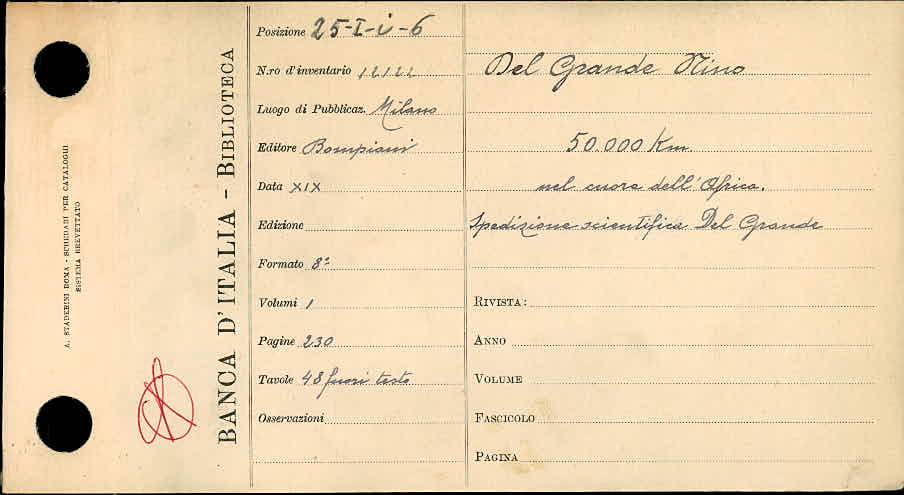 A. STADERINI ROMA - SCHEDARI PER CATALOGUI
SISTEMA BREVETTATO
BANCA D'ITALIA - BIBLIOTECA
Posizione 25-I-i-6
N.ro d'inventario 12122
Luogo di Pubblicaz. Milano
Editore Bompiani
Data XIX
Edizione
Formato 8º
Volumi 1
Pagine 230
Tavole 48 fuori testo
Osservazioni
Del Grande Nino
50.000 Km.
nel cuore dell'Africa.
Spedizione scientifica Del Grande
RIVISTA:
ANNO
VOLUME
FASCICOLO
PAGINA